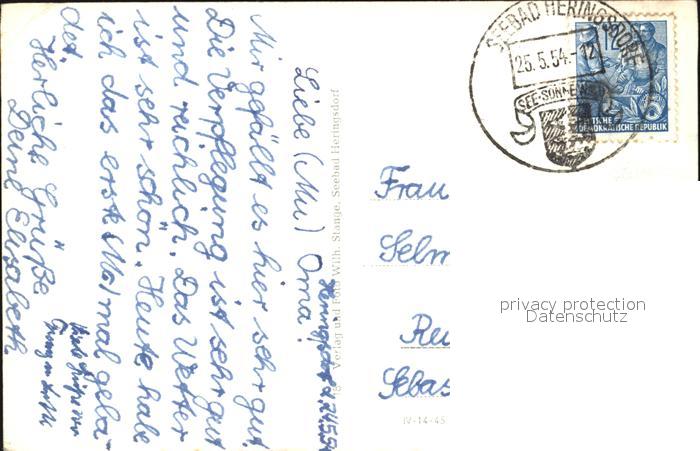 Heringsdorf d. 24.5.54
Liebe (Mu) Oma!
Mir gefällt es hier sehr gut.
Die Verpflegung ist sehr gut
und reichlich. Das Wetter
ist sehr schön. Heute habe
ich das erste Mal mal geba-
det.
Herliche Grüße
Deine Elisabeth
Viele Grüße von
Verlag und Foto Wilh. Stange, Seebad Heringsdorf
SEEBAD HERINGSDORF
25.5.54.-12
SEE·SONNE·WALD
12
DEUTSCHE
DEMOKRATISCHE REPUBLIK
Frau
Selm
Reu
Sebas
IV-14-45
privacy protection
Datenschutz